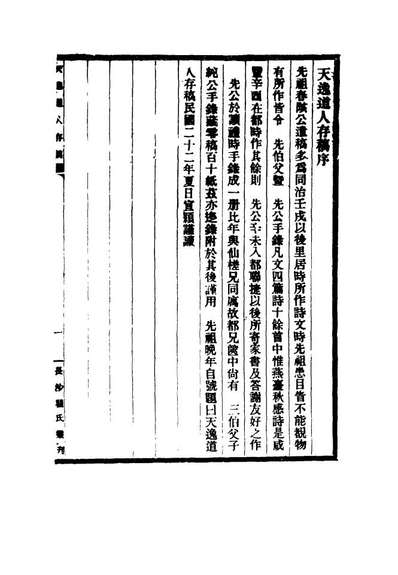 天逸道人存稿序
先祖春陔公遺稿多爲同治壬戌以後里居時所作詩文時先祖患目眚不能覩物
有所作皆令　先伯父暨　先公手錄凡文四篇詩十餘首中惟燕臺秋感詩是咸
豐辛酉在都時作其餘則　先公年未入都聯捷以後所寄家書及答謝友好之作
先公於讀禮時手錄成一册比年與仙槎兄同寓故都兄篋中尚有　三伯父子
純公手錄叢零稿百十紙茲亦迻錄附於其後謹用　先祖晚年自號題曰天逸道
人存稿民國二十二年夏日宣穎謹識
天逸道人存稿
一
長沙瞿氏叢刊